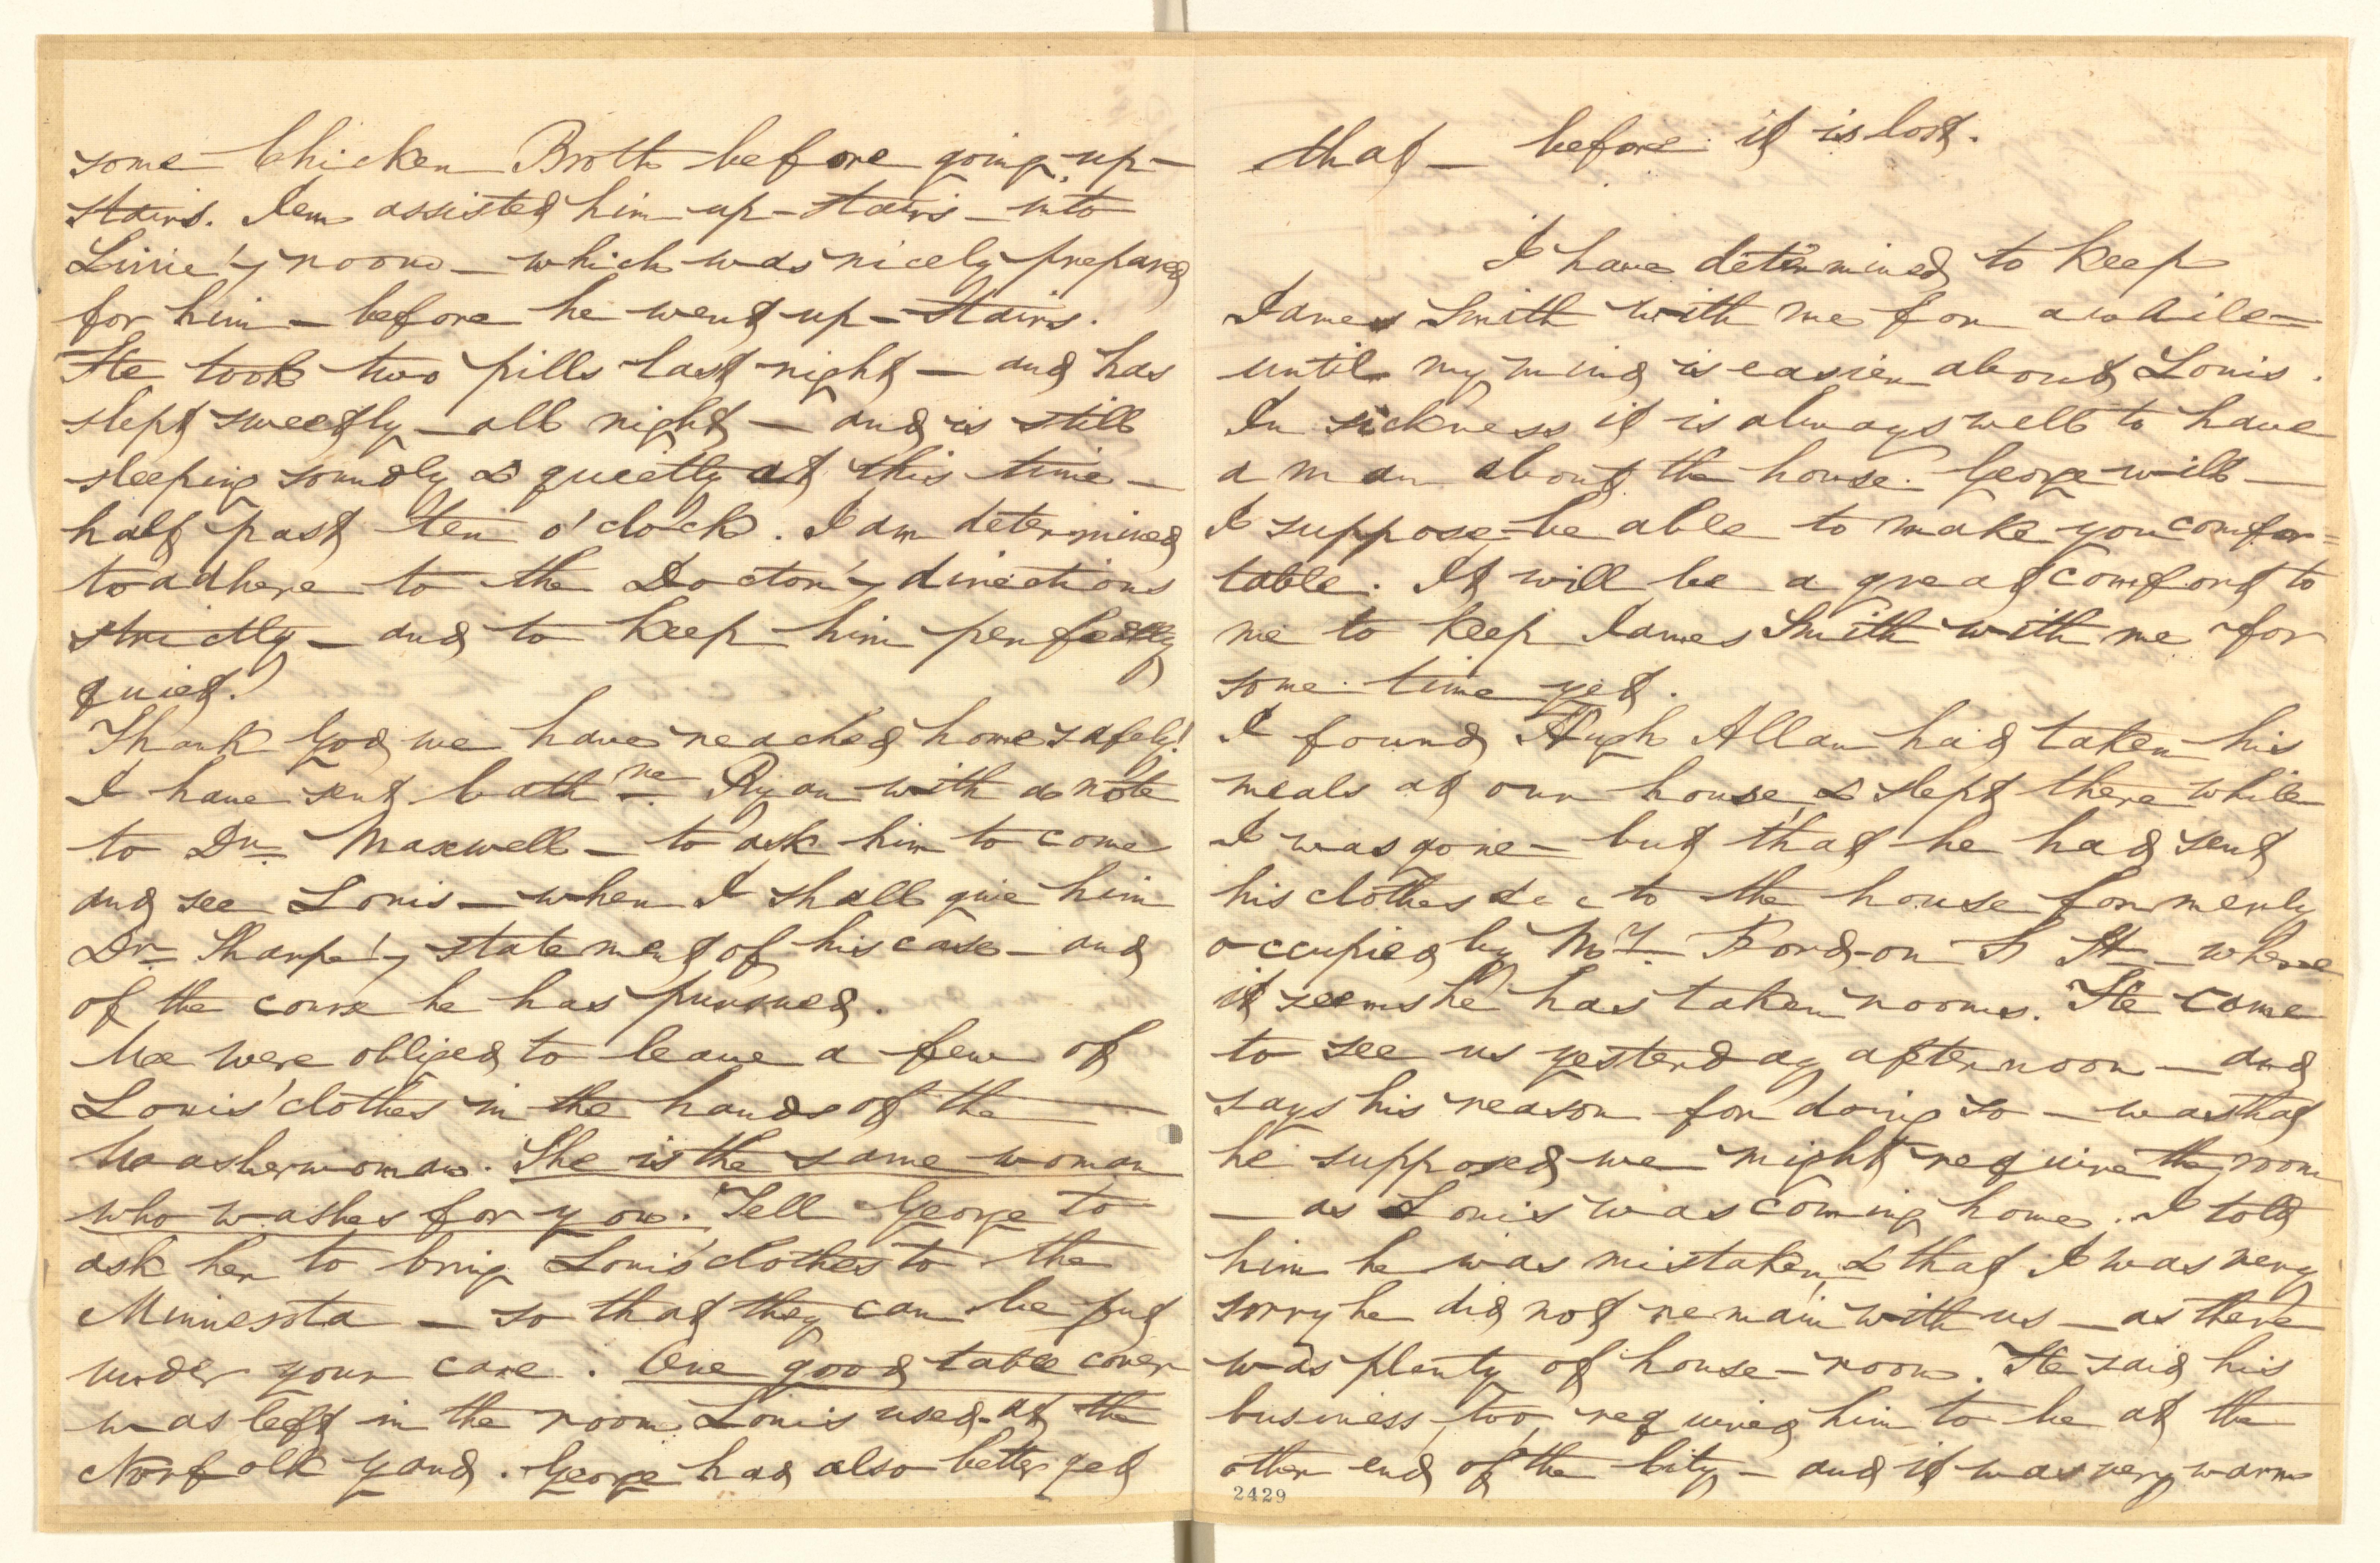 some Chicken Broth before going up-
stairs. Jem assisted him up-stairs - into
Linie's room - which was nicely prepared
for him - before he went up-stairs.
He took two pills last night - and has
slept sweetly - all night - and is still
sleeping soundly & quietly at this time -
half past ten o'clock. I am determined
to adhere to the Doctor's directions
strictly - and to keep him perfectly
quiet!
Thank God we have reached home safely!
I have sent Cathne. Ryan with a note
to Dr. Maxwell - to ask him to come
and see Louis - when I shall give him
Dr. Sharpe's statement of his case - and
of the course he has pursued.
We were obliged to leave a few of
Louis' clothes in the hands of the
Washerwoman. She is the same woman
who washes for you. Tell George to
ask her to bring Louis' clothes to the
Minnesota - so that they can be put
under your care. One good table cover
was left in the room Louis used at the
Norfolk Yard. George had also better get
that - before it is lost.
I have determined to keep
James Smith with me for a while -
until my mind is easier about Louis.
In sickness it is always well to have
a man about the house. George will -
I suppose - be able to make you comfor=
table. It will be a great comfort to
me to keep James Smith with me for
some time yet.
I found Hugh Allan had taken his
meals at our house, & slept there while
I was gone - but that he had sent
his clothes &c to the house formerly
occupied by Mr. Ford - on F St - where
it seems he has taken rooms. He came
to see us yesterday afternoon - and
says his reason for doing so - was that
he supposed we might require the room
- as Louis was coming home. I told
him he was mistaken, & that I was very
sorry he did not remain with us - as there
was plenty of house-room. He said his
business, too, required him to be at the
other end of the City - and it was very warm
2429